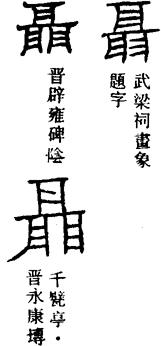 聶
武梁祠畫象
題字
聶
晉辟雍碑陰
聶
千甓亭·
晉永康塼